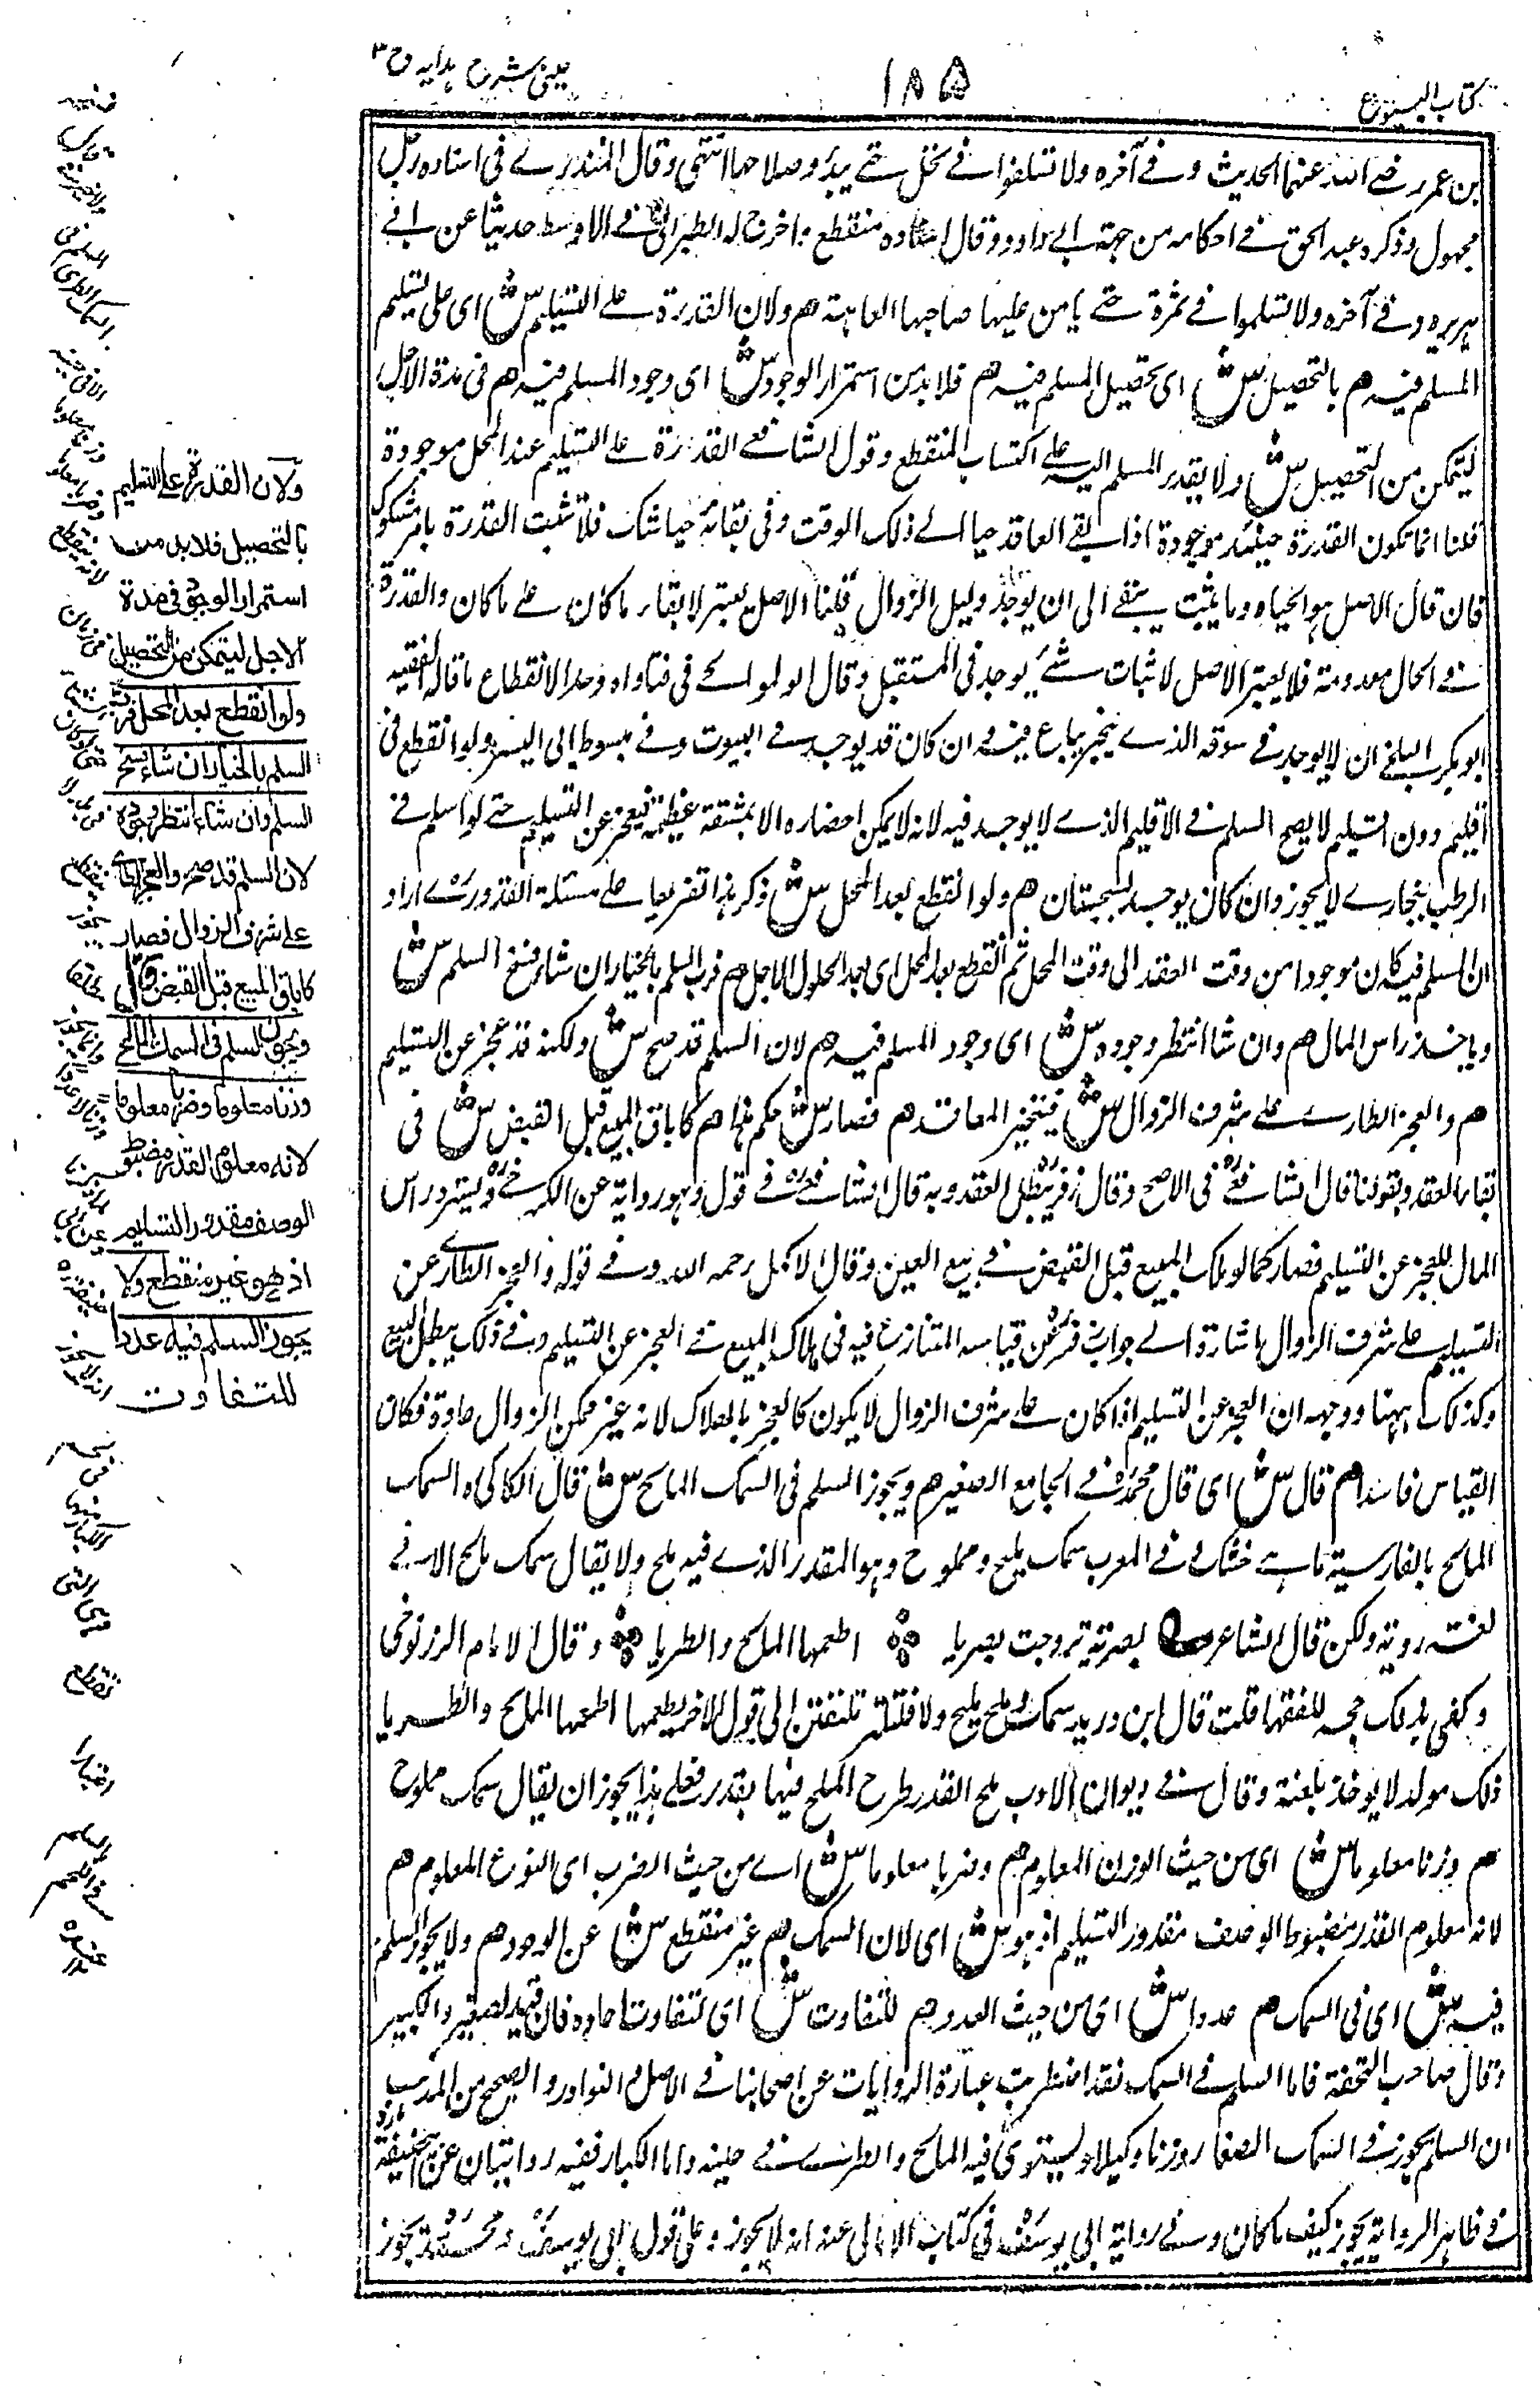 كتاب البيوع
١٨٥
عينى شرح هدايه ج ٣
بن عمر رضے اللہ عنهما الحديث وفے آخره ولا تسلفوا فے نخل حتے يبدو صلاحها انتهى وقال المنذرے فى اسناده رجل
مجهول وذكره عبد الحق فے احكامه من جهة ابے داود وقال اسناده منقطع واخرج له الطبرانى فے الاوسط حديثا عن ابے
هريره وفے آخره ولا تسلموا فے ثمرة حتے يامن عليها صاحبها العاهة هم ولان القدرة علے التسليم ش اى على تسليم
المسلم فيه هم بالتحصيل ش اى بتحصيل المسلم فيه هم فلا بد من استمرار الوجود ش اى وجود المسلم فيه هم فى مدة الاجل
ليتمكن من التحصيل ش ولا يقدر المسلم اليه علے اكتساب المنقطع وقول الشافعے القدرة علے التسليم عند المحل موجودة
قلنا انما تكون القدرة حينئذ موجودة اذا بقے العاقد حيا الے ذلك الوقت وفى بقائه حيا شك فلا تثبت القدرة بامر مشكوك
فان قال الاصل هو الحياه وما يثبت يبقے الى ان يوجد دليل الزوال قلنا الاصل يعتبر لابقاء ما كان علے ما كان والقدرة
فے الحال معدومة فلا يعتبر الاصل لاثبات شئ يوجد فى المستقبل وقال الولوالجے فى فتاواه وحد الانقطاع ما قاله الفقيه
ابو بكر البلخے ان لا يوجد فے سوقه الذے يتجر يباع فيه وان كان قد يوجد فے البيوت وفے مبسوط ابى اليسر ولو انقطع فى
اقليم دون اقليم لا يصح السلم فے الاقليم الذے لا يوجد فيه لانه لا يمكن احضاره الا بمشقة عظيمة فيعجز عن التسليم حتے لو اسلم فے
الرطب ببخارے لا يجوز وان كان يوجد بسجستان هم ولو انقطع بعد المحل ش ذكر هذا تفريعا علے مسئلة القدورے اراد
ان المسلم فيه كان موجودا من وقت العقد الى وقت المحل ثم انقطع بعد المحل اى بعد حلول الاجل هم فرب السلم بالخيار ان شاء فسخ السلم ش
وياخذ راس المال هم وان شاء انتظر وجوده ش اى وجود المسلم فيه هم لان السلم قد صح ش ولكنه قد عجز عن التسليم
هم والعجز الطارے علے شرف الزوال ش فيتخير العاقد هم فصار ش حكم هذا هم كاباق المبيع قبل القبض ش فى
بقاء العقد وبقولنا قال الشافعے فى الاصح وقال زفر يبطل العقد وبه قال الشافعے فے قول وهو رواية عن الكرخے ويسترد راس
المال للعجز عن التسليم فصار كما لو هلك المبيع قبل القبض فے بيع العين وقال الاكمل رحمه الله وفے قوله والعجز الطارے عن
التسليم علے شرف الزوال اشارة الے جواب زفر عن قياسه المتنازع فيه فى هلاك المبيع فے العجز عن التسليم وفے ذلك يبطل البيع
وكذلك ههنا ووجهه ان العجز عن التسليم اذا كان علے شرف الزوال لا يكون كالعجز بالهلاك لانه غير ممكن الزوال عادة فكان
القياس فاسدا هم قال ش اى قال محمد فے الجامع الصغير هم ويجوز السلم فى السمك المالح ش قال الكاكى السمك
المالح بالفارسية ماہے خشك وفے المغرب سمك مليح ومملوح وهو المقدر الذے فيه ملح ولا يقال سمك مالح الا فے
لغة روية ولكن قال الشاعر بصرية تزوجت بصريا اطعمها المالح والطريا وقال الامام الزرنوخى
وكفى بذلك حجة للفقها قلت قال ابن دريد سمك ملح مليح ولا تلتفتن الى قول الاخر يطعمها اطعمها المالح والطريا
ذلك مولد لا يوخذ بلغته وقال فے ديوان الادب ملح القدر طرح الملح فيها بقدر فعلے هذا يجوز ان يقال سمك مملوح
هم وزنا معلوما ش اى من حيث الوزن المعلوم هم وضربا معلوما ش اے من حيث الضرب اى النوع المعلوم هم
لانه معلوم القدر مضبوط الوصف مقدور التسليم اذ هو ش اى لان السمك هم غير منقطع ش عن الوجود هم ولا يجوز السلم
فيه ش اى فى السمك هم عددا ش اى من حيث العدد هم للتفاوت ش اى لتفاوت احاده فان فيه الصغير والكبير
وقال صاحب التحفة فاما السلم فے السمك فقد اضطربت عبارة الروايات عن اصحابنا فے الاصل والنوادر والصحيح من المذهب
ان السلم يجوز فے السمك الصغار وزنا وكيلا ويستوى فيه المالح والطرے فے حينه واما الكبار ففيه روايتان عن ابى حنيفة
فے ظاهر الرواية يجوز كيف ما كان وفے رواية ابى يوسف فى كتاب الامالى عنه انه لا يجوز وعلى قول ابى يوسف ومحمد يجوز
ولان القدرة على التسليم
بالتحصيل فلا بد من
استمرار الوجود فى مدة
الاجل ليتمكن من التحصيل
ولو انقطع بعد المحل فرب
السلم بالخيار ان شاء فسخ
السلم وان شاء انتظر وجوده
لان السلم قد صح والعجز الطارى
على شرف الزوال فصار
كاباق المبيع قبل القبض قال
ويجوز السلم فى السمك المالح
وزنا معلوما وضربا معلوما
لانه معلوم القدر مضبوط
الوصف مقدور التسليم
اذ هو غير منقطع ولا
يجوز السلم فيه عددا
للتفاوت
قال
السلم فى
السمك الطرى
لانه ينقطع
فى زمان
ينقطع
يجوز
الكبار منها
تقطع
السلم
فى اللحم
عنده